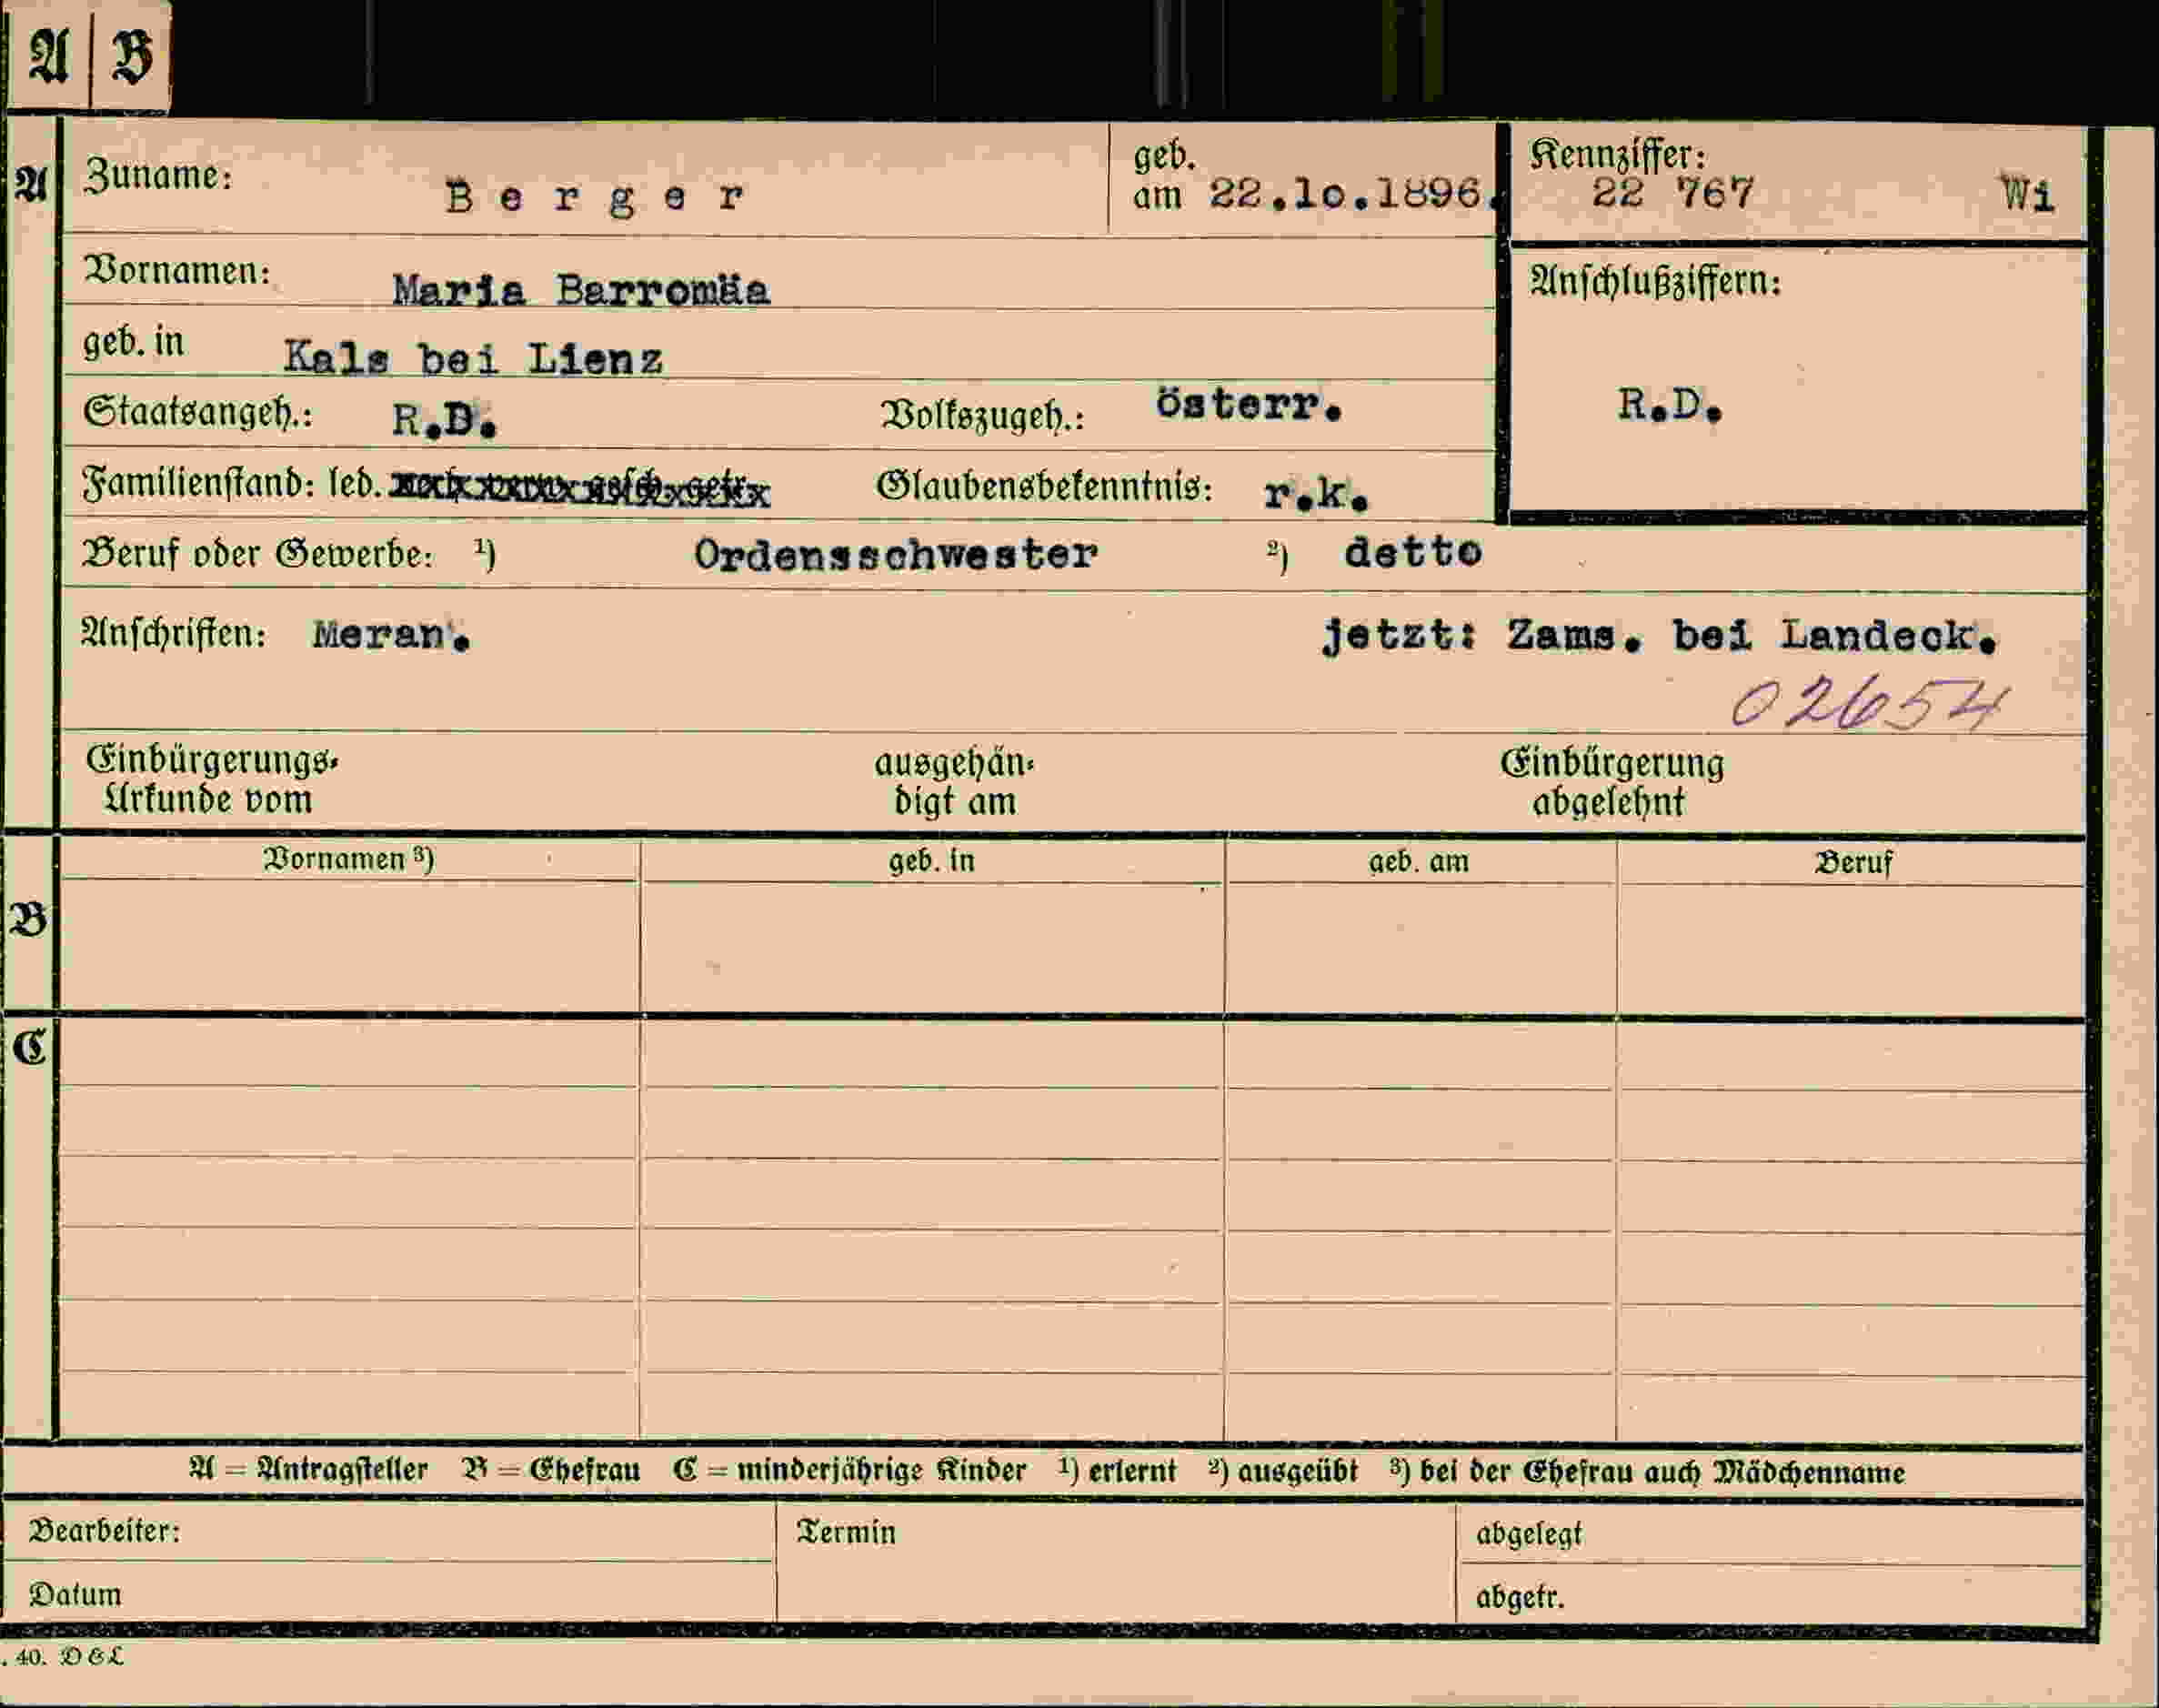 A B
A Zuname: Berger geb. am 22.10.1896. Kennziffer: 22 767 Wi
Vornamen: Maria Barromäa Anschlußziffern:
geb. in Kals bei Lienz
Staatsangeh.: R.D. Volkszugeh.: österr. R.D.
Familienstand: led. Glaubensbekenntnis: r.k.
Beruf oder Gewerbe: ¹) Ordensschwester ²) detto
Anschriften: Meran. jetzt: Zams. bei Landeck.
02654
Einbürgerungs- ausgehän- Einbürgerung
Urkunde vom digt am abgelehnt
Vornamen ³) geb. in geb. am Beruf
B
C
A = Antragsteller B = Ehefrau C = minderjährige Kinder ¹) erlernt ²) ausgeübt ³) bei der Ehefrau auch Mädchenname
Bearbeiter: Termin abgelegt
Datum abgetr.
. 40. D & L